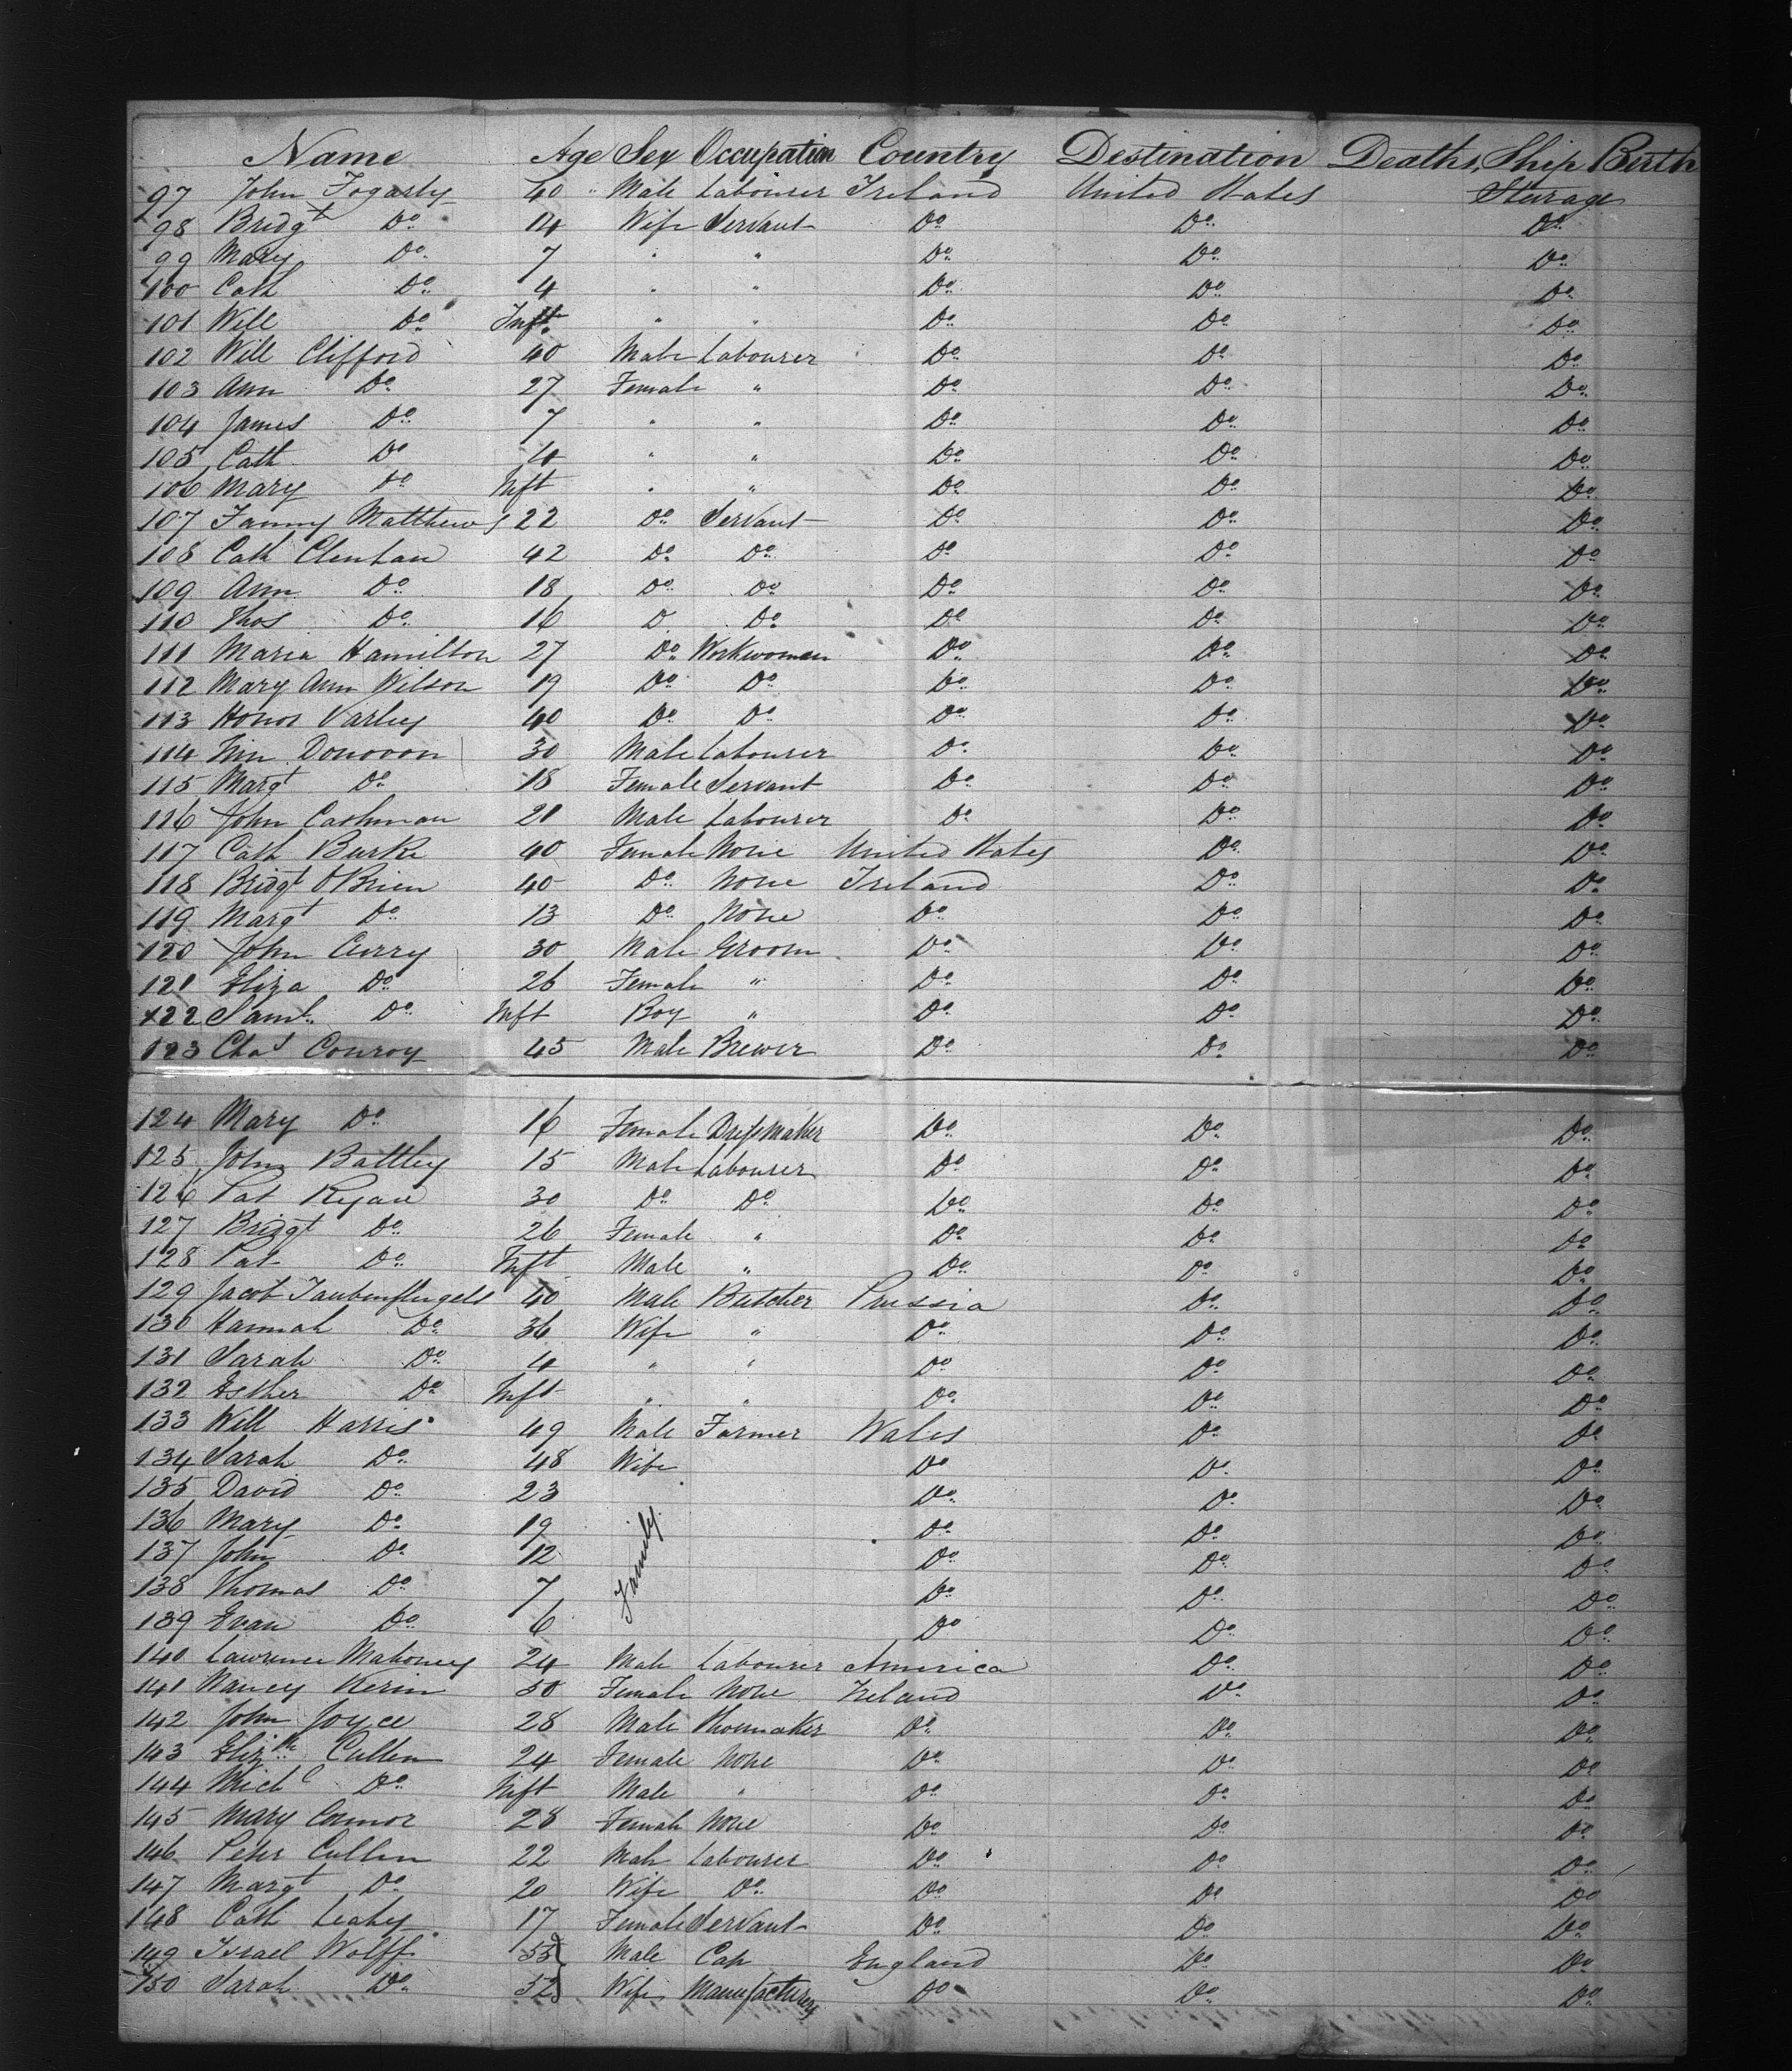 Name Age Sex Occupation Country Destination Deaths, Ship Berth
97 John Fogarty 40 " Male Labourer Ireland United States Sturage
98 Bridgt Do 14 Wife Servant Do Do Do
99 Mary Do 7 " " Do Do Do
100 Cath Do 4 " " Do Do Do
101 Will Do Inft " " Do Do Do
102 Will Clifford 40 Male Labourer Do Do Do
103 Ann Do 27 Female " Do Do Do
104 James Do 7 " " Do Do Do
105 Cath Do 4 " " Do Do Do
106 Mary Do Inft " " Do Do Do
107 Fanny Matthews 22 Do Servant Do Do Do
108 Cath Clenhan 42 Do Do Do Do Do
109 Ann Do 18 Do Do Do Do Do
110 Thos Do 16 D Do Do Do Do
111 Maria Hamilton 27 Do Workwoman Do Do Do
112 Mary Ann Wilson 19 Do Do Do Do Do
113 Honor Varley 40 Do Do Do Do Do
114 Donovon 30 Male Labourer Do Do Do
115 Margt Do 18 Female Servant Do Do Do
116 John Cashman 21 Male Labourer Do Do Do
117 Cath Burke 40 Female None United States Do Do
118 Bridgt O'Brien 40 Do None Ireland Do Do
119 Margt Do 13 Do None Do Do Do
120 John Curry 30 Male Groom Do Do Do
121 Eliza Do 26 Female " Do Do Do
122 Saml Do Inft Boy " Do Do Do
123 Chas Conroy 45 Male Brewer Do Do Do
124 Mary Do 16 Female Dressmaker Do Do Do
125 John Battley 15 Male Labourer Do Do Do
126 Pat Ryan 30 Do Do Do Do Do
127 Bridgt Do 26 Female " Do Do Do
128 Pat Do Inft Male " Do Do Do
129 Jacob Taubenflugels 40 Male Butcher Prussia Do Do
130 Hannah Do 36 Wife " Do Do Do
131 Sarah Do 4 " " Do Do Do
132 Esther Do Inft " " Do Do Do
133 Will Harris 49 Male Farmer Wales Do Do
134 Sarah Do 48 Wife Do Do Do
135 David Do 23 Do Do Do
136 Mary Do 19 Family. Do Do Do
137 John Do 12 Do Do Do
138 Thomas Do 7 Do Do Do
139 Evan Do 6 Do Do Do
140 Lawrence Mahoney 24 Male Labourer America Do Do
141 Nancy Kerin 50 Female None Ireland Do Do
142 John Joyce 28 Male Shoemaker Do Do Do
143 Elizth Cullen 24 Female None Do Do Do
144 Michl Do Inft Male " Do Do Do
145 Mary Connor 28 Female None Do Do Do
146 Peter Cullen 22 Male Labourer Do Do Do
147 Margt Do 20 Wife Do Do Do Do
148 Cath Leahy 17 Female Servant Do Do Do
149 Israel Wolff 53 Male Cap England Do Do
150 Sarah Do 52 Wife Manufacturers Do Do Do